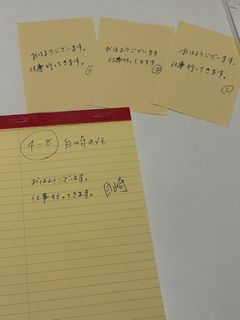 おはようございます。
仕事行ってきます。
①
おはようございます
仕事行ってきます
②
おはようございます。
仕事行ってきます。
4-8 白崎のメモ
おはようございます。
仕事行ってきます。
白崎